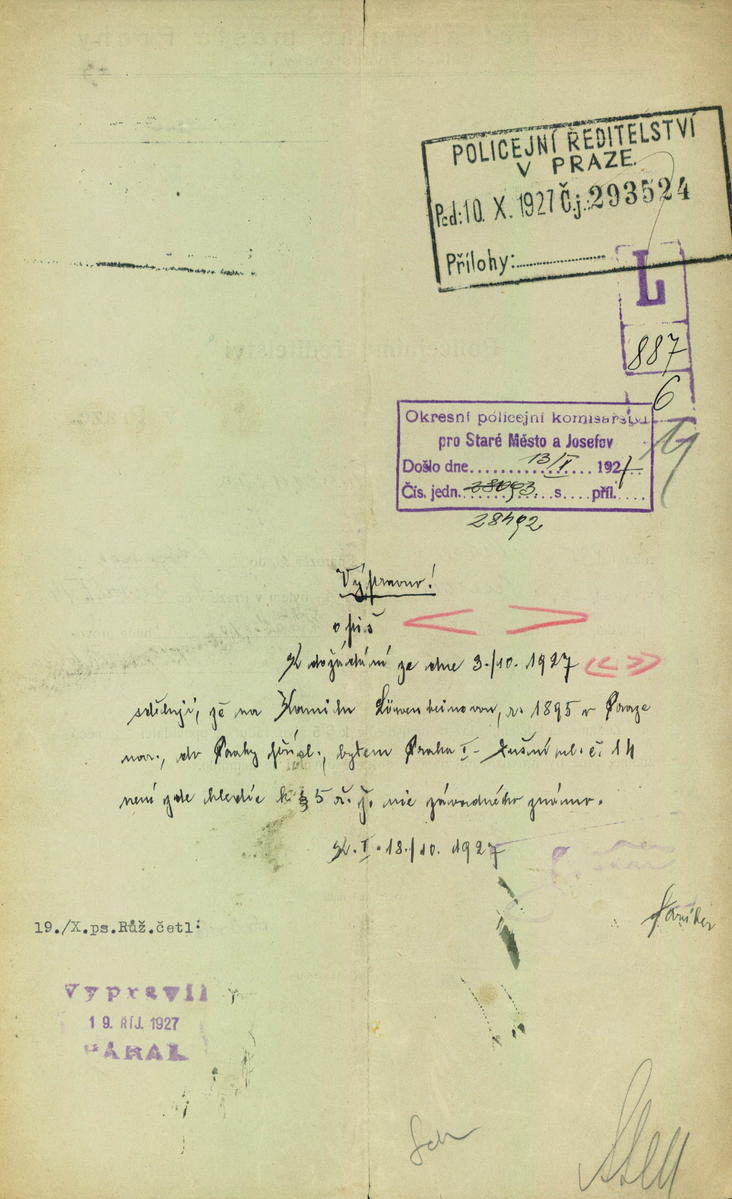 POLICEJNÍ ŘEDITELSTVÍ
V PRAZE.
Pod: 10. X. 1927 Č.j.: 293524
Přílohy:..................
L
887
6
Okresní policejní komisařství
pro Staré Město a Josefov
Došlo dne 13/X 1927
Čís. jedn. s.... příl.....
28492
Výpravno!
opiš
K dožádání ze dne 3./10. 1927
sděluji, že na Kamilu Löwenbeinovou, r. 1895 v Praze
nar., do Prahy přísl., bytem Praha I- Dušní ul. č. 14
není zde hledíc k § 5 ž. ř. nic závadného známo.
K. I. 18./10. 1927
19./X.ps.Růž.četl:
Vypravil
19. ŘÍJ. 1927